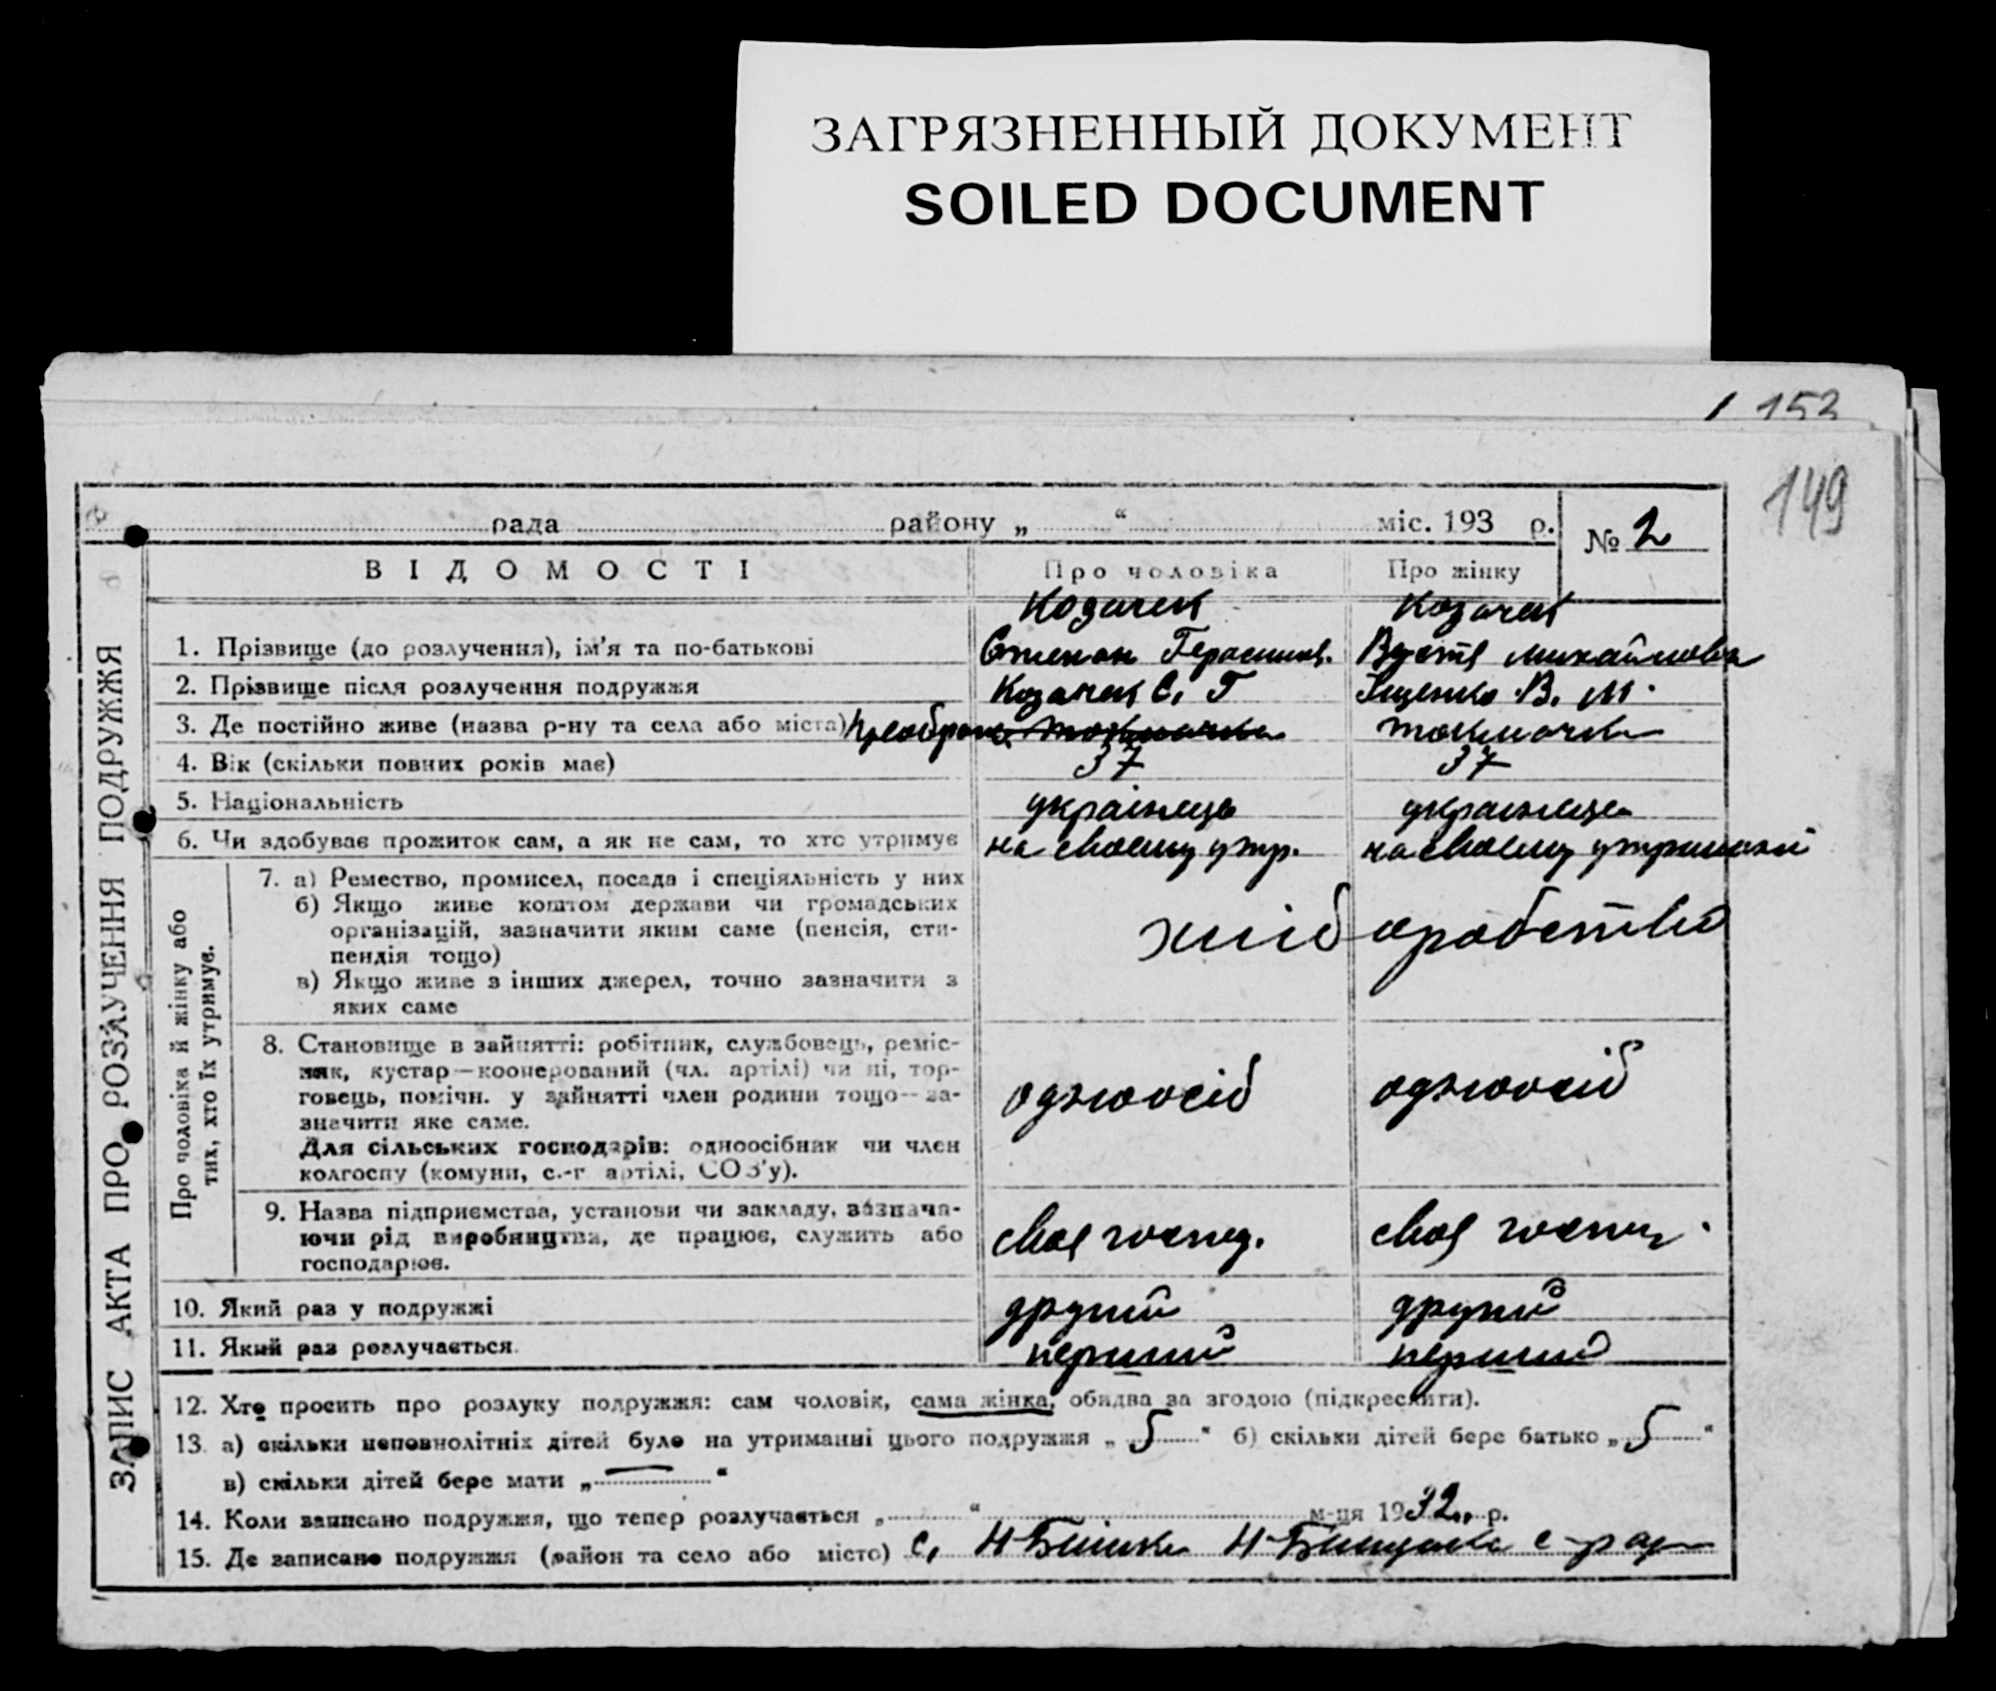 ЗАГРЯЗНЕННЫЙ ДОКУМЕНТ
SOILED DOCUMENT
153
149
рада району „ “ міс. 193 р.
№ 2
ВІДОМОСТІ Про чоловіка Про жінку
Козачек Козачек
1. Прізвище (до розлучення), ім'я та по-батькові Степан Герасимов. Михайловна
2. Прізвище після розлучення подружжя Козачек С. Г Іщенко В. М.
3. Де постійно живе (назва р-ну та села або міста) Токмачка Токмачка
4. Вік (скільки повних років має) 37 37
5. Національність українець українець
6. Чи здобуває прожиток сам, а як не сам, то хто утримує на своєму утр. на своєму утриманні
Про чоловіка й жінку або
тих, хто їх утримує.
7. а) Ремество, промисел, посада і спеціяльність у них
б) Якщо живе коштом держави чи громадських
організацій, зазначити яким саме (пенсія, сти-
пендія тощо)
хліборобство
в) Якщо живе з інших джерел, точно зазначити з
яких саме
8. Становище в зайнятті: робітник, службовець, реміс-
ник, кустар—кооперований (чл. артілі) чи ні, тор-
говець, помічн. у зайнятті член родини тощо—за-
значити яке саме.
Для сільських господарів: одноосібник чи член
колгоспу (комуни, с.-г артілі, СОЗ'у).
одноосіб одноосіб
9. Назва підприємства, установи чи закладу, зазнача-
ючи рід виробництва, де працює, служить або
господарює.
своя своя
10. Який раз у подружжі другий другий
11. Який раз розлучається. перший перший
12. Хто просить про розлуку подружжя: сам чоловік, сама жінка, обидва за згодою (підкреслити).
13. а) скільки неповнолітніх дітей було на утриманні цього подружжя „ 5 “ б) скільки дітей бере батько „ 5 “
в) скільки дітей бере мати „ — “
14. Коли записано подружжя, що тепер розлучається „ “ м-ця 1932 р.
15. Де записано подружжя (район та село або місто) с.
ЗАПИС АКТА ПРО РОЗЛУЧЕННЯ ПОДРУЖЖЯ